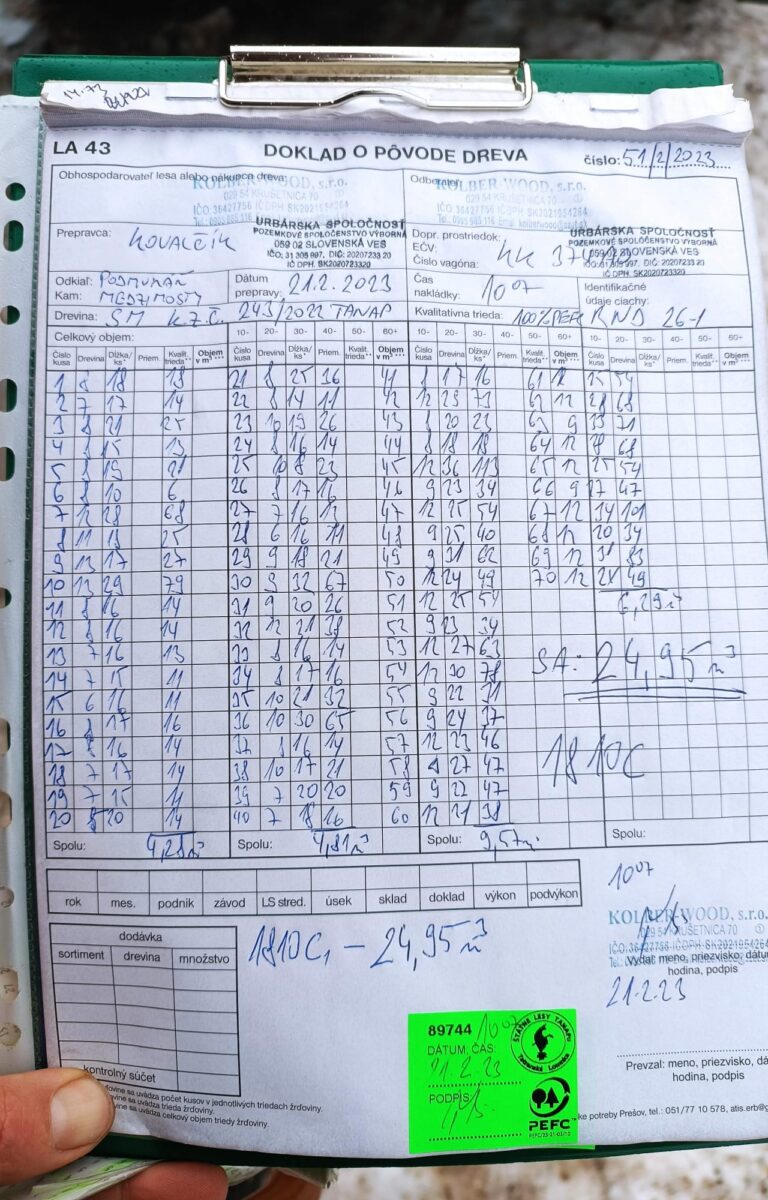 LA 43 DOKLAD O PÔVODE DREVA číslo: 51/2/2023
Obhospodarovateľ lesa alebo nákupca dreva:
KOLBER-WOOD, s.r.o.
029 54 KRUŠETNICA 70
IČO 36427756 IČ DPH SK2021954264
Odberateľ:
KOLBER-WOOD, s.r.o.
029 54 KRUŠETNICA 70
IČO 36427756 IČ DPH SK2021954264
Prepravca: KOVALČÍK
URBÁRSKA SPOLOČNOSŤ
POZEMKOVÉ SPOLOČENSTVO VÝBORNÁ
059 02 SLOVENSKÁ VES
IČO 31 305 997, DIČ: 20207233 20
IČ DPH. SK2020723320
Dopr. prostriedok:
EČV: KK
Číslo vagóna:
URBÁRSKA SPOLOČNOSŤ
POZEMKOVÉ SPOLOČENSTVO VÝBORNÁ
059 02 SLOVENSKÁ VES
IČ DPH. SK2020723320
Odkiaľ: PODMURÁŇ
Kam: MEDZIMOSTY
Dátum prepravy: 21.2.2023
Čas nakládky: 10 07
Identifikačné údaje ciachy:
Drevina: SM K.Z.Č. 243/2022 TANAP
Kvalitatívna trieda: 100% PEFC RND 26-1
Celkový objem: 10- 20- 30- 40- 50- 60+ 10- 20- 30- 40- 50- 60+ 10- 20- 30- 40- 50- 60+
Číslo kusa Drevina Dĺžka/ks* Priem. Kvalit. trieda** Objem v m³***
1 8 18 18 21 8 25 36 41 8 17 16 61 12 25 54
2 7 17 14 22 8 14 11 42 12 29 73 62 12 28 68
3 8 21 25 23 10 19 26 43 8 20 23 63 9 33 71
4 8 15 13 24 8 16 14 44 8 18 18 64 12 28 68
5 8 19 21 25 10 8 23 45 12 36 113 65 12 25 54
6 8 10 6 26 8 17 16 46 9 23 34 66 9 27 47
7 12 28 68 27 7 16 12 47 12 25 54 67 12 34 101
8 11 18 25 28 6 16 11 48 9 25 40 68 12 20 34
9 13 17 27 29 9 18 21 49 9 31 62 69 12 31 83
10 13 29 79 30 9 32 67 50 12 24 49 70 12 24 49
11 8 16 14 31 9 20 26 51 12 25 54 6,29m³
12 8 16 14 32 12 21 38 52 9 23 34
13 7 16 13 33 8 16 14 53 12 27 63 SA: 24,95m³
14 7 15 11 34 8 17 16 54 12 30 78
15 6 16 11 35 10 21 32 55 9 22 31
16 8 17 16 36 10 30 65 56 9 24 37
17 8 16 14 37 8 16 14 57 12 23 46 1810C
18 7 17 14 38 10 17 21 58 27 47
19 7 15 11 39 7 20 20 59 9 27 47
20 8 20 14 40 7 18 16 60 12 21 38
Spolu: 4,28m³ Spolu: 4,81m³ Spolu: 9,57m³ Spolu:
rok mes. podnik závod LS stred. úsek sklad doklad výkon podvýkon
10 07
dodávka
sortiment drevina množstvo
kontrolný súčet
1810C, - 24,95m³
KOLBER-WOOD, s.r.o.
029 54 KRUŠETNICA 70
IČO: 36427756 IČ DPH SK2021954264
Vydal: meno, priezvisko,
hodina, podpis
21.2.23
89744 10 07
DÁTUM, ČAS:
21.2.23
PODPIS
ŠTÁTNE LESY TANAPU
Tatranská Lomnica
PEFC
Prevzal: meno, priezvisko,
hodina, podpis
uvádza počet kusov v jednotlivých triedach žrďoviny.
sa uvádza trieda žrďoviny.
sa uvádza celkový objem triedy žrďoviny.
potreby Prešov, tel.: 051/77 10 578,